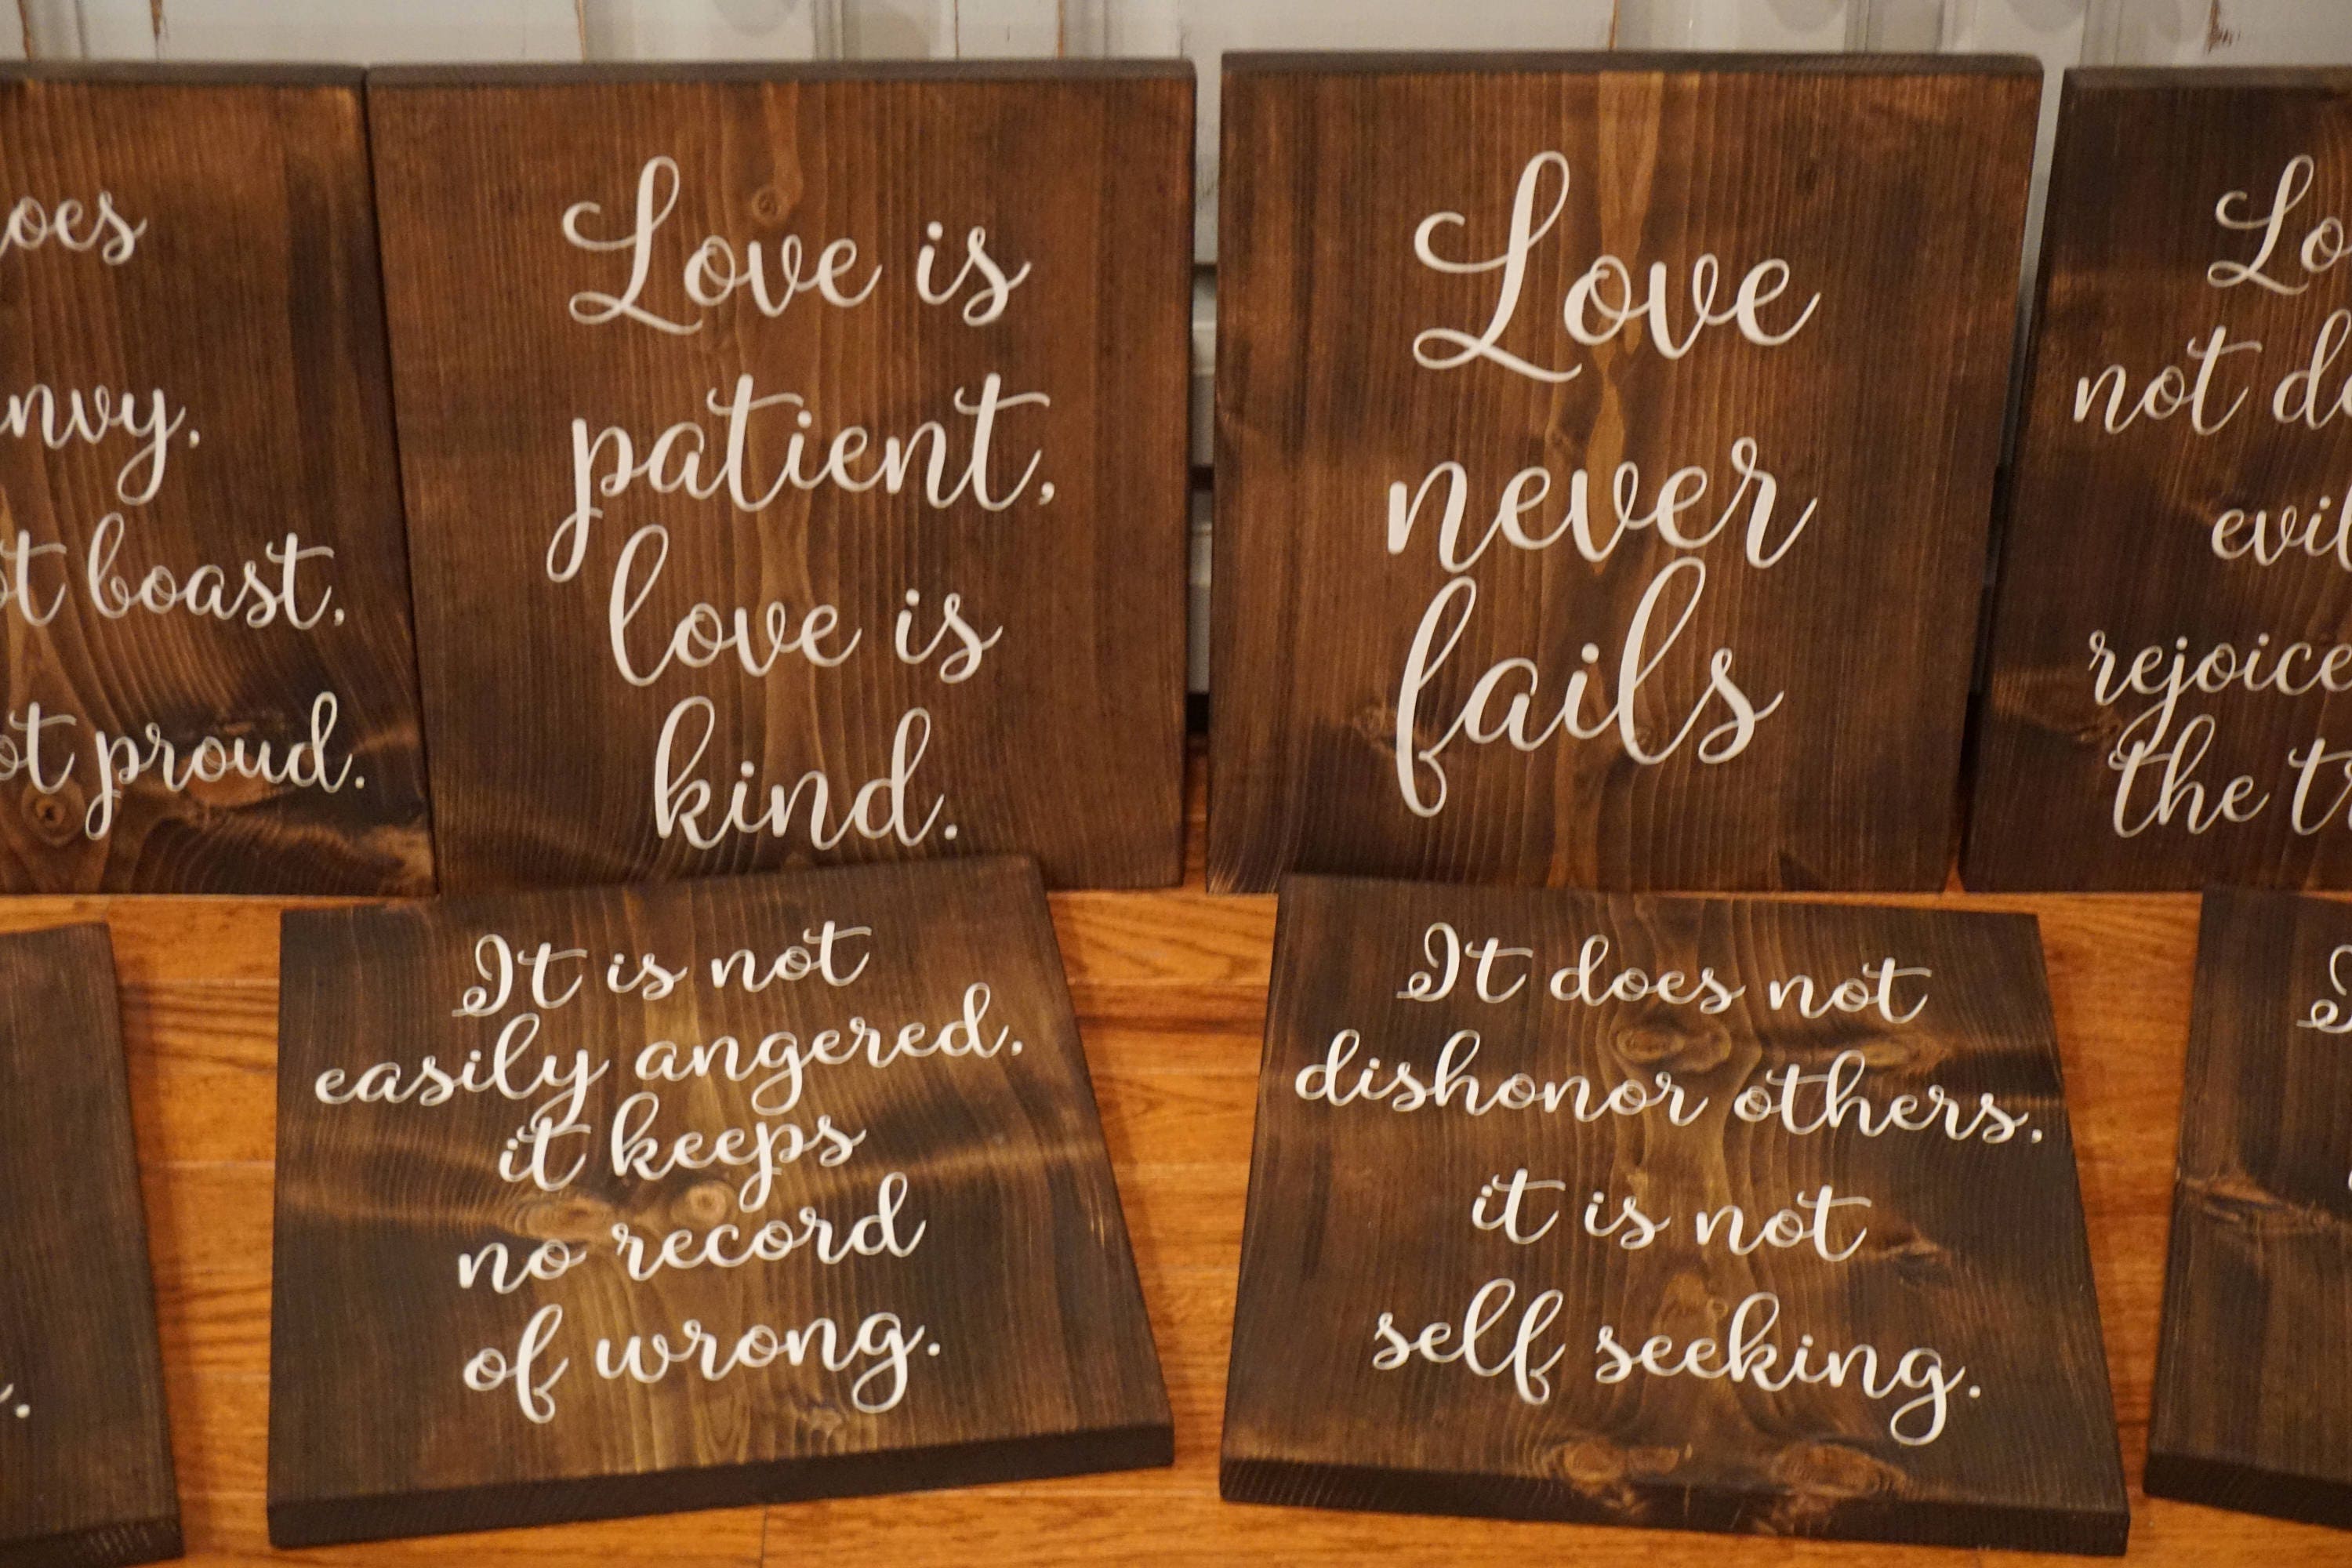 not boast,
not proud.
Love is
patient,
love is
kind.
Love
never
fails
not
evil
the
It is not
easily angered,
it keeps
no record
of wrong.
It does not
dishonor others,
it is not
self seeking.